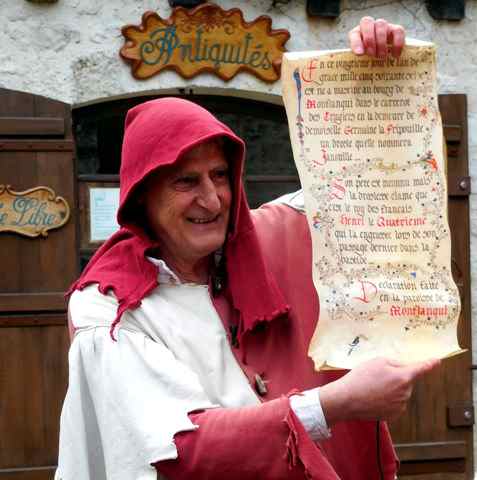 Antiquités
e Libre
En ce vingtieme jour de l'an de
grace mille cinq soixante et six
est ne a maxine au bourg de
Monflanqui dans le carrerot
des Tuyiers en la demeure de
demoiselle Germaine la Fripouille
un drosle qu'elle nommera
Janville...
Son pere est inconnu mais
la drolesse clame que
c'est le roy des francais
Henri le Quatrieme
qui la engrossee lors de son
passage dernier dans la
bastide...
Declaration faite
en la paroisse de
Monflanqui